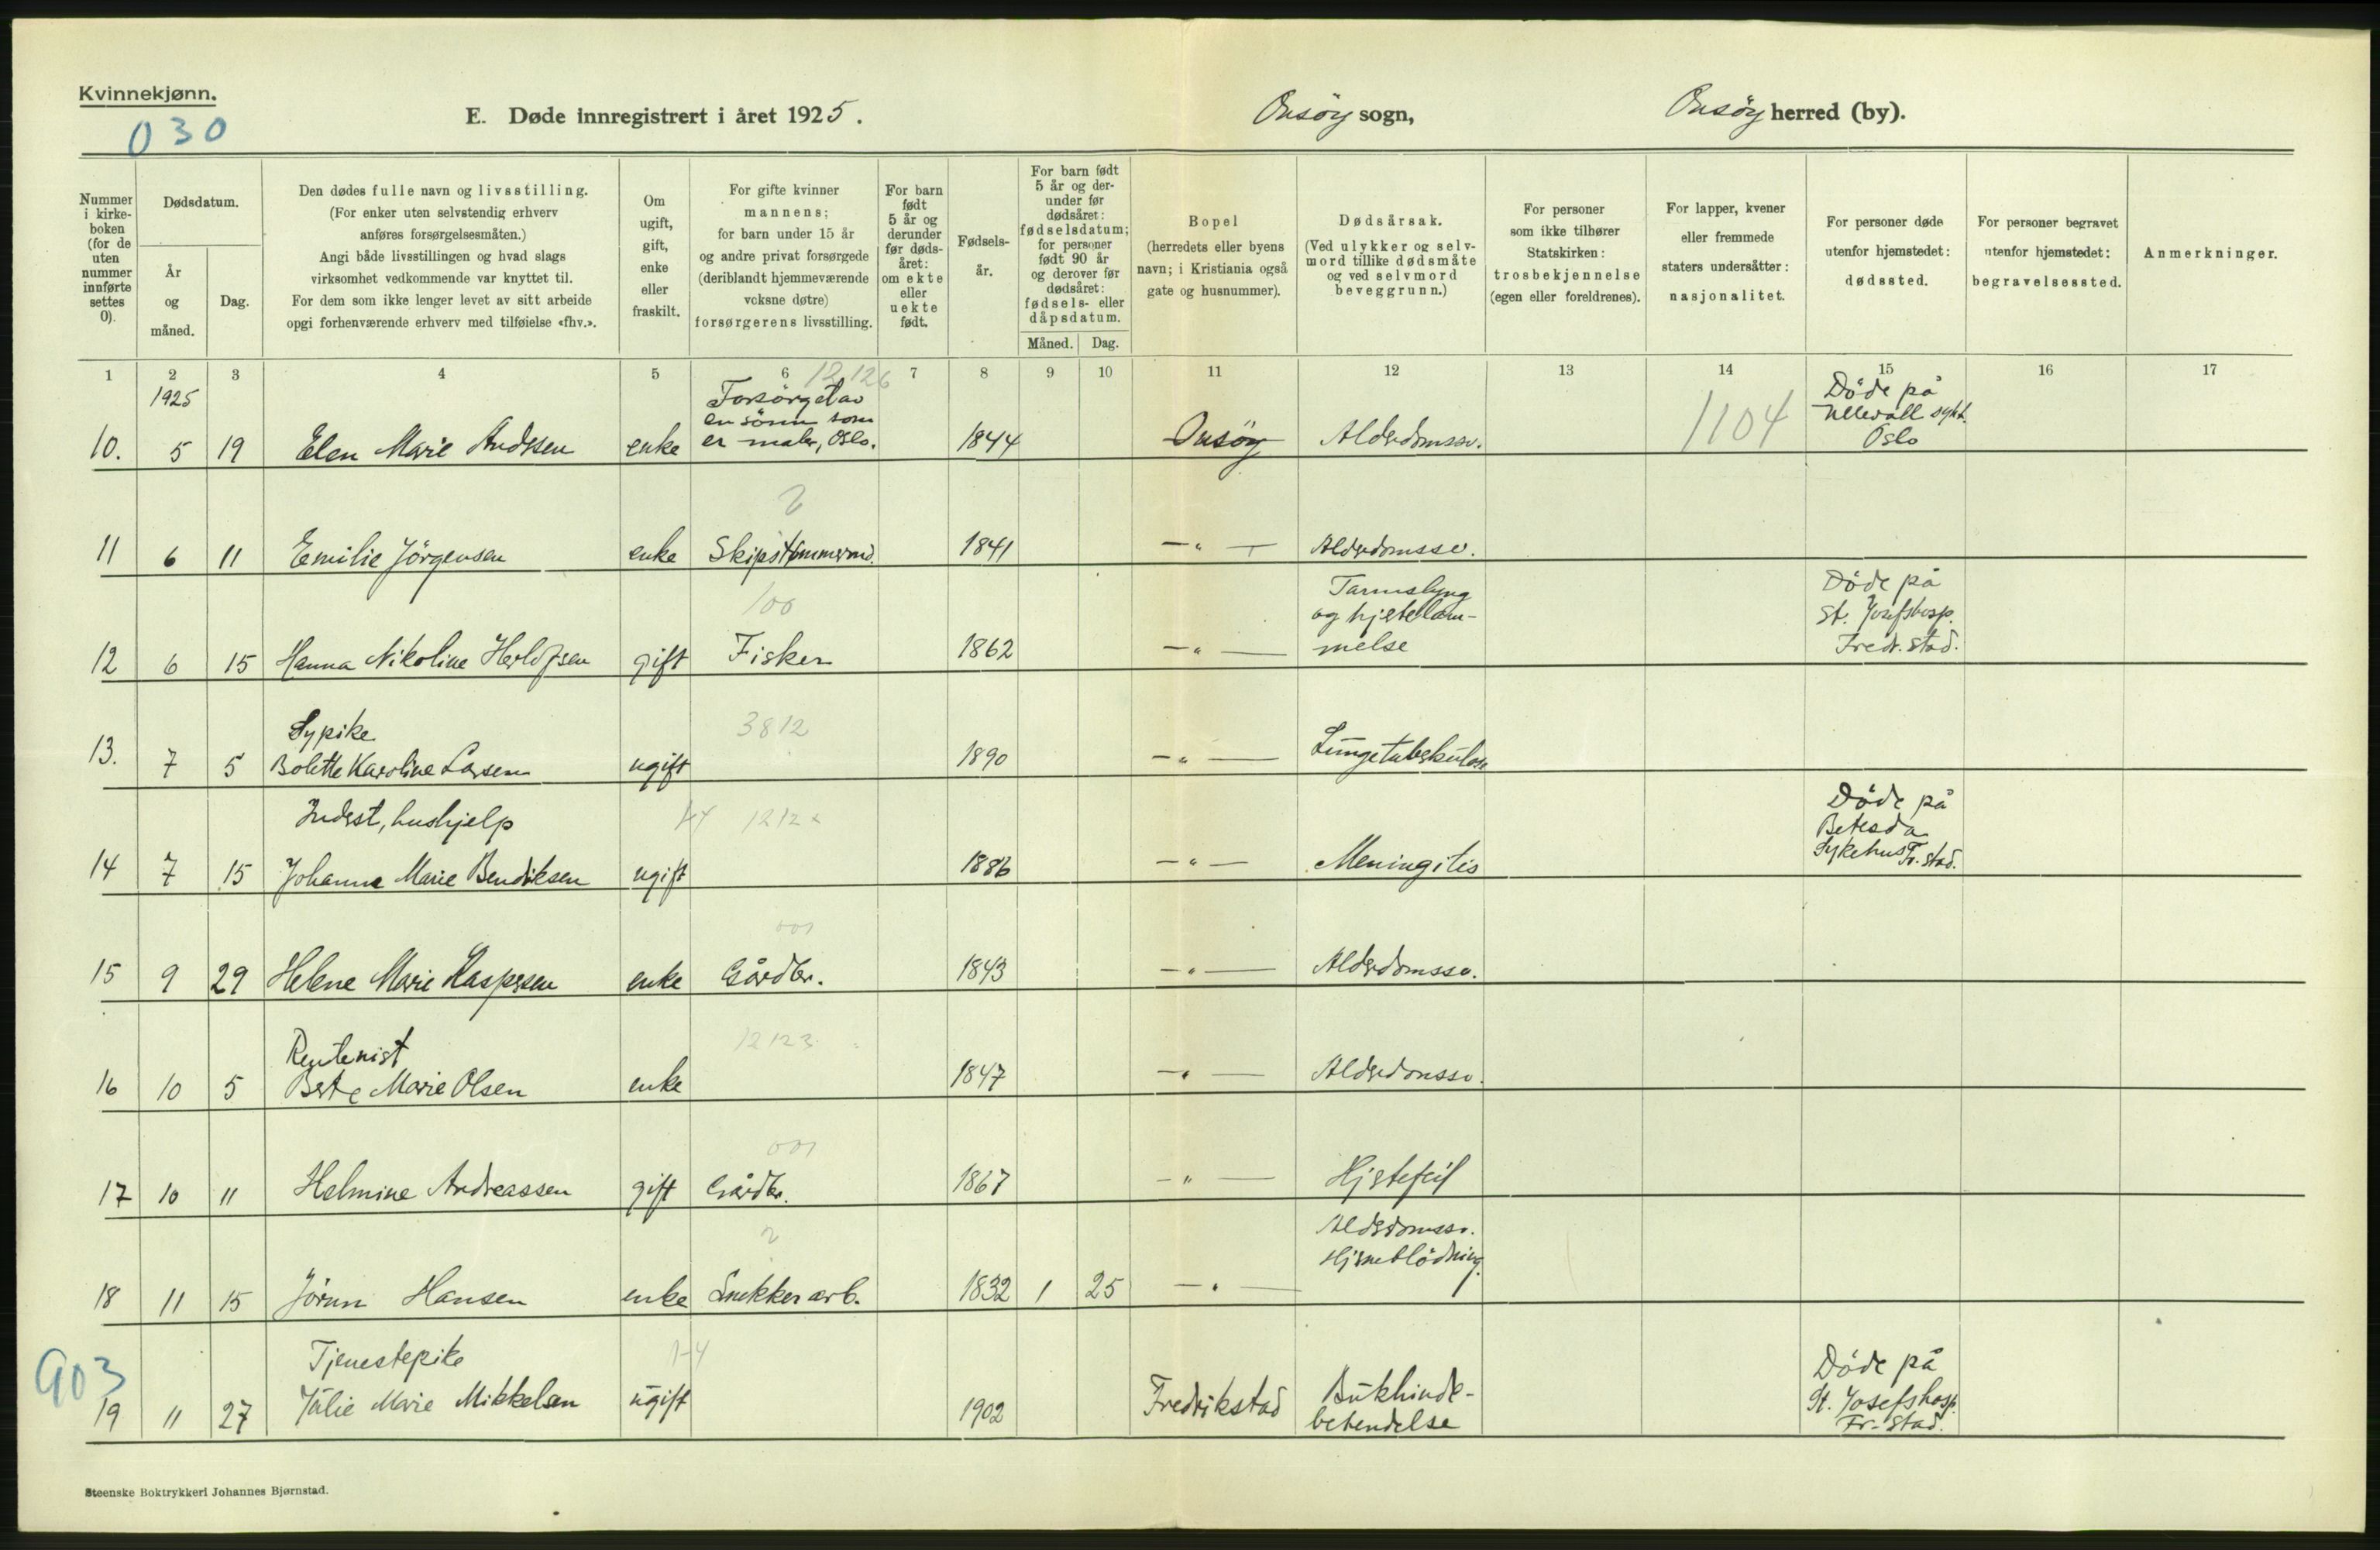 Kvinnekjønn.
030
E. Døde innregistrert i året 1925.
Onsöy sogn,
Onsöy herred (by).
Nummer i kirke-boken (for de uten nummer innførte settes 0).
Dødsdatum.
År og måned.
Dag.
Den dødes fulle navn og livsstilling.
(For enker uten selvstendig erhverv
anføres forsørgelsesmåten.)
Angi både livsstillingen og hvad slags
virksomhet vedkommende var knyttet til.
For dem som ikke lenger levet av sitt arbeide
opgi forhenværende erhverv med tilføielse «fhv.».
Om ugift, gift, enke eller fraskilt.
For gifte kvinner
mannens;
for barn under 15 år
og andre privat forsørgede
(deriblandt hjemmeværende
voksne døtre)
forsørgerens livsstilling.
For barn født 5 år og derunder før døds-året: om ekte eller uekte født.
Fødsels-år.
For barn født 5 år og der-under før dødsåret: fødselsdatum; for personer født 90 år og derover før dødsåret: fødsels- eller dåpsdatum.
Måned. Dag.
Bopel
(herredets eller byens
navn; i Kristiania også
gate og husnummer).
Dødsårsak.
(Ved ulykker og selv-
mord tillike dødsmåte
og ved selvmord
beveggrunn.)
For personer
som ikke tilhører
Statskirken:
trosbekjennelse
(egen eller foreldrenes).
For lapper, kvener
eller fremmede
staters undersåtter:
nasjonalitet.
For personer døde
utenfor hjemstedet:
dødssted.
For personer begravet
utenfor hjemstedet:
begravelsessted.
Anmerkninger.
1 2 3 4 5 6 7 8 9 10 11 12 13 14 15 16 17
1925
12 126
Forsörget av
en sönn som
er maler, Oslo.
Döde på
Ullevåll sykh.
Oslo
10. 5 19 Elen Marie Andersen enke 1844 Onsöy Alderdomssv. 1104
2
11 6 11 Emilie Jörgensen enke Skipstömmermd. 1841 -"- Alderdomssv.
100
Tarmslyng
og hjertelam-
melse
Döde på
St. Josefshosp.
Fredr.stad.
12 6 15 Hanna Nikoline Herlofsen gift Fisker 1862 -"-
Sypike
3812
13. 7 5 Bolette Karoline Larsen ugift 1890 -"- Lungetuberkulose
Inderst, hushjelp
Döde på
Betesda
Sykehus Fr.stad.
14 7 15 Johanne Marie Bendiksen ugift 1886 -"- Meningitis
001
15 9 29 Helene Marie Kaspersen enke Gårdbr. 1843 -"- Alderdomssv.
Rentenist
12123
16 10 5 Berte Marie Olsen enke 1847 -"- Alderdomssv.
001
17 10 11 Helmine Andreassen gift Gårdbr. 1867 -"- Hjertefeil
2
Alderdomssv.
Hjerneblödning.
18 11 15 Jörnn Hansen enke Snekkerarb. 1832 1 25 -"-
903
Tjenestepike
Döde på
St. Josefshosp.
Fr.stad.
19 11 27 Julie Marie Mikkelsen ugift 1902 Fredrikstad Bukhinde-
betendelse
Steenske Boktrykkeri Johannes Bjørnstad.